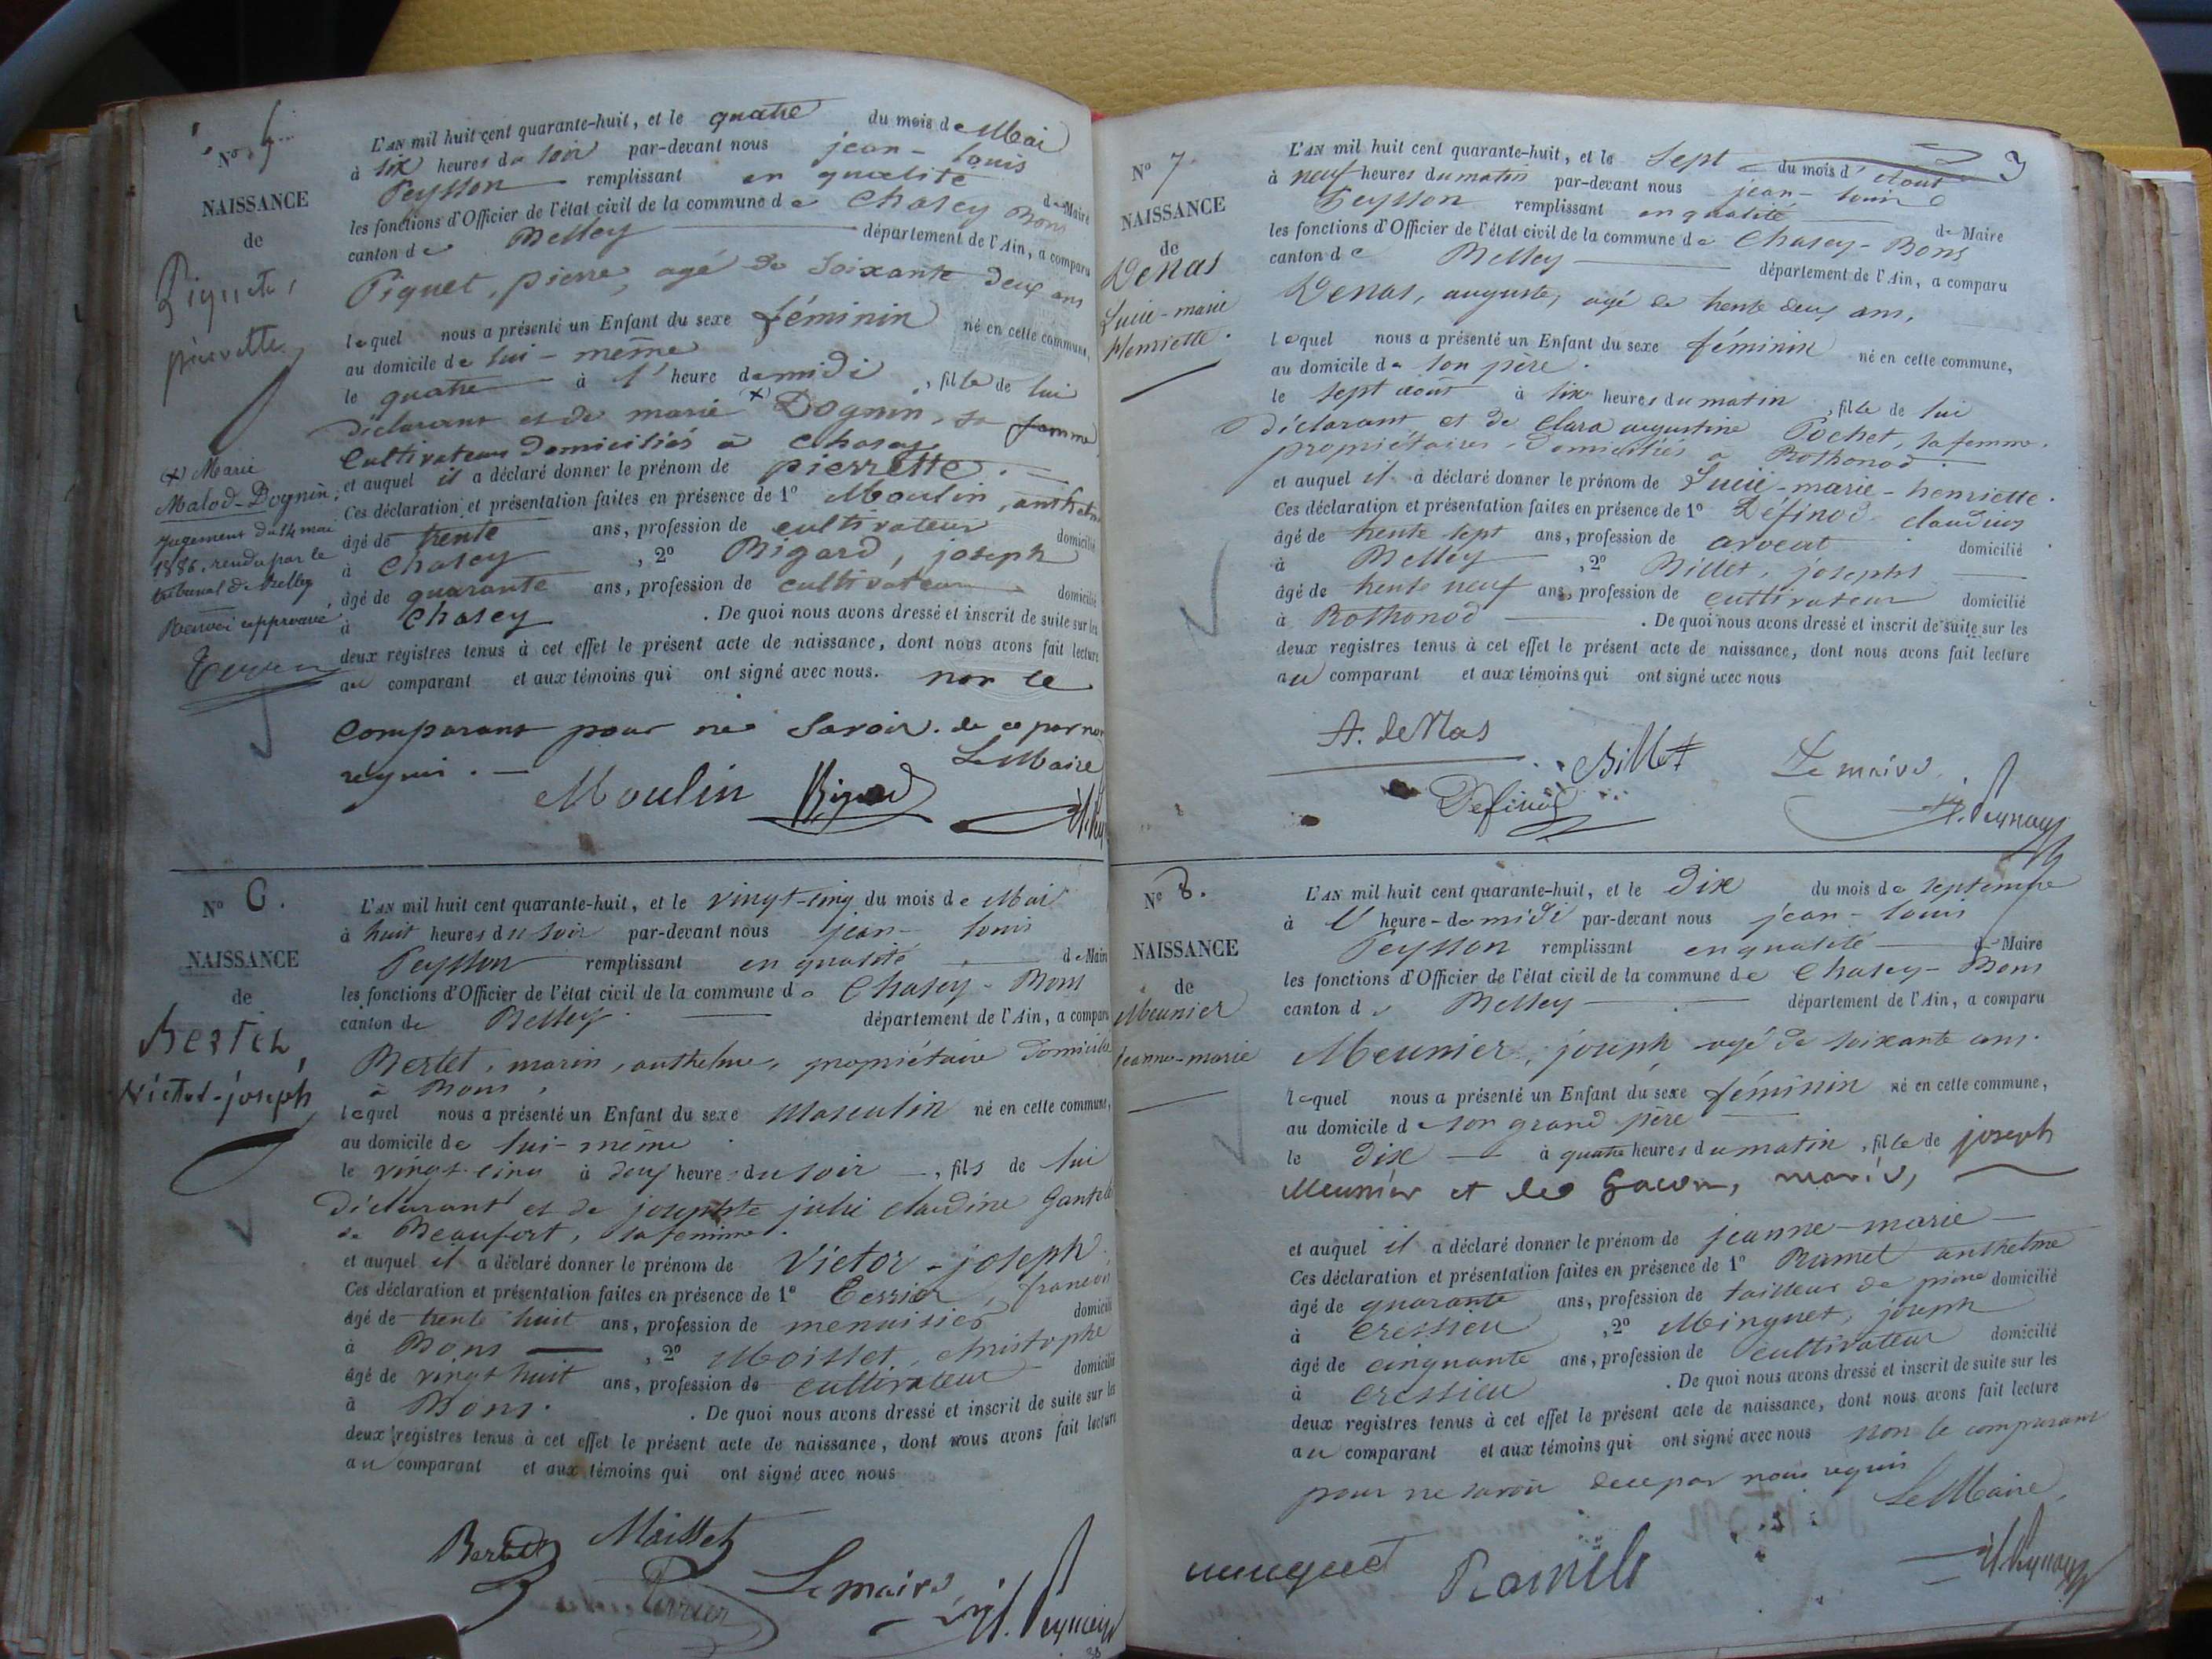 No 5
NAISSANCE
de
Piguet,
pierrette
L'AN mil huit cent quarante-huit, et le quatre du mois de Mai
à six heures du soir par-devant nous jean-louis
Peysson remplissant en qualité de Maire
les fonctions d'Officier de l'état civil de la commune de Chasey Bons
canton de Belley département de l'Ain, a comparu
Piguet, pierre, agé de soixante deux ans
lequel nous a présenté un Enfant du sexe féminin né en cette commune,
au domicile de lui-même
le quatre à 1' heure de midi, fille de lui
déclarant et de marie (x) Dognin, sa femme
Cultivateurs domiciliés à Chasey
et auquel il a déclaré donner le prénom de pierrette.
Ces déclaration et présentation faites en présence de 1º Moulin, anthelme
âgé de trente ans, profession de cultivateur domicilié
à Chasey, 2º Bigard, joseph
âgé de quarante ans, profession de cultivateur domicilié
à Chasey. De quoi nous avons dressé et inscrit de suite sur les
deux registres tenus à cet effet le présent acte de naissance, dont nous avons fait lecture
au comparant et aux témoins qui ont signé avec nous. non le
comparant pour ne savoir. de ce par nous
requis.
Le Maire
Moulin Bigard
(x) Marie
Malod-Dognin,
jugement du 14 mai
1886, rendu par le
tribunal de Belley
Renvoi approuvé
No 6.
NAISSANCE
de
Bertet,
Victor-joseph
L'AN mil huit cent quarante-huit, et le vingt-cinq du mois de Mai
à huit heures du soir par-devant nous jean-louis
Peysson remplissant en qualité de Maire
les fonctions d'Officier de l'état civil de la commune de Chasey-Bons
canton de Belley département de l'Ain, a comparu
Bertet, marin, anthelme, propriétaire domicilié
à Bons,
lequel nous a présenté un Enfant du sexe masculin né en cette commune,
au domicile de lui-même
le vingt cinq à deux heure du soir, fils de lui
déclarant et de josephte julie claudine
de Beaufort, sa femme.
et auquel il a déclaré donner le prénom de Victor-joseph
Ces déclaration et présentation faites en présence de 1º françois
âgé de trente huit ans, profession de menuisier domicilié
à Bons, 2º Moisset, christophe
âgé de vingt huit ans, profession de cultivateur domicilié
à Bons. De quoi nous avons dressé et inscrit de suite sur les
deux registres tenus à cet effet le présent acte de naissance, dont nous avons fait lecture
au comparant et aux témoins qui ont signé avec nous
Bertet Moisset
Le maire
No 7.
NAISSANCE
de
Denas
Lucie-marie
Henriette.
L'AN mil huit cent quarante-huit, et le sept du mois d'Aout
à neuf heures du matin par-devant nous jean-louis
Peysson remplissant en qualité de Maire
les fonctions d'Officier de l'état civil de la commune de Chasey-Bons
canton de Belley département de l'Ain, a comparu
Denas, auguste, agé de trente deux ans,
lequel nous a présenté un Enfant du sexe féminin né en cette commune,
au domicile de son père.
le sept aout à six heures du matin, fille de lui
déclarant, et de Clara augustine Pochet, sa femme.
propriétaires, domiciliés à Rothonod.
et auquel il a déclaré donner le prénom de Lucie-marie-henriette.
Ces déclaration et présentation faites en présence de 1º Définod claudius
âgé de trente sept ans, profession de avocat domicilié
à Belley, 2º Billet, joseph
âgé de trente neuf ans, profession de cultivateur domicilié
à Rothonod. De quoi nous avons dressé et inscrit de suite sur les
deux registres tenus à cet effet le présent acte de naissance, dont nous avons fait lecture
au comparant et aux témoins qui ont signé avec nous
A. deNas
Billet
Le maire
Définod
No 8.
NAISSANCE
de
Meunier
Jeanne-marie
L'AN mil huit cent quarante-huit, et le dix du mois de septembre
à l' heure de midi par-devant nous jean-louis
Peysson remplissant en qualité de Maire
les fonctions d'Officier de l'état civil de la commune de Chasey-Bons
canton de Belley département de l'Ain, a comparu
Meunier, joseph, agé de soixante ans.
lequel nous a présenté un Enfant du sexe féminin né en cette commune,
au domicile de son grand père
le dix à quatre heures du matin, fille de joseph
Meunier et de mariés,
et auquel il a déclaré donner le prénom de jeanne-marie
Ces déclaration et présentation faites en présence de 1º Ramel anthelme
âgé de quarante ans, profession de tailleur de pierre domicilié
à Cressieu, 2º Minguet, joseph
âgé de cinquante ans, profession de cultivateur domicilié
à Cressieu. De quoi nous avons dressé et inscrit de suite sur les
deux registres tenus à cet effet le présent acte de naissance, dont nous avons fait lecture
au comparant et aux témoins qui ont signé avec nous non le comparant
pour ne savoir de ce par nous requis
Le Maire,